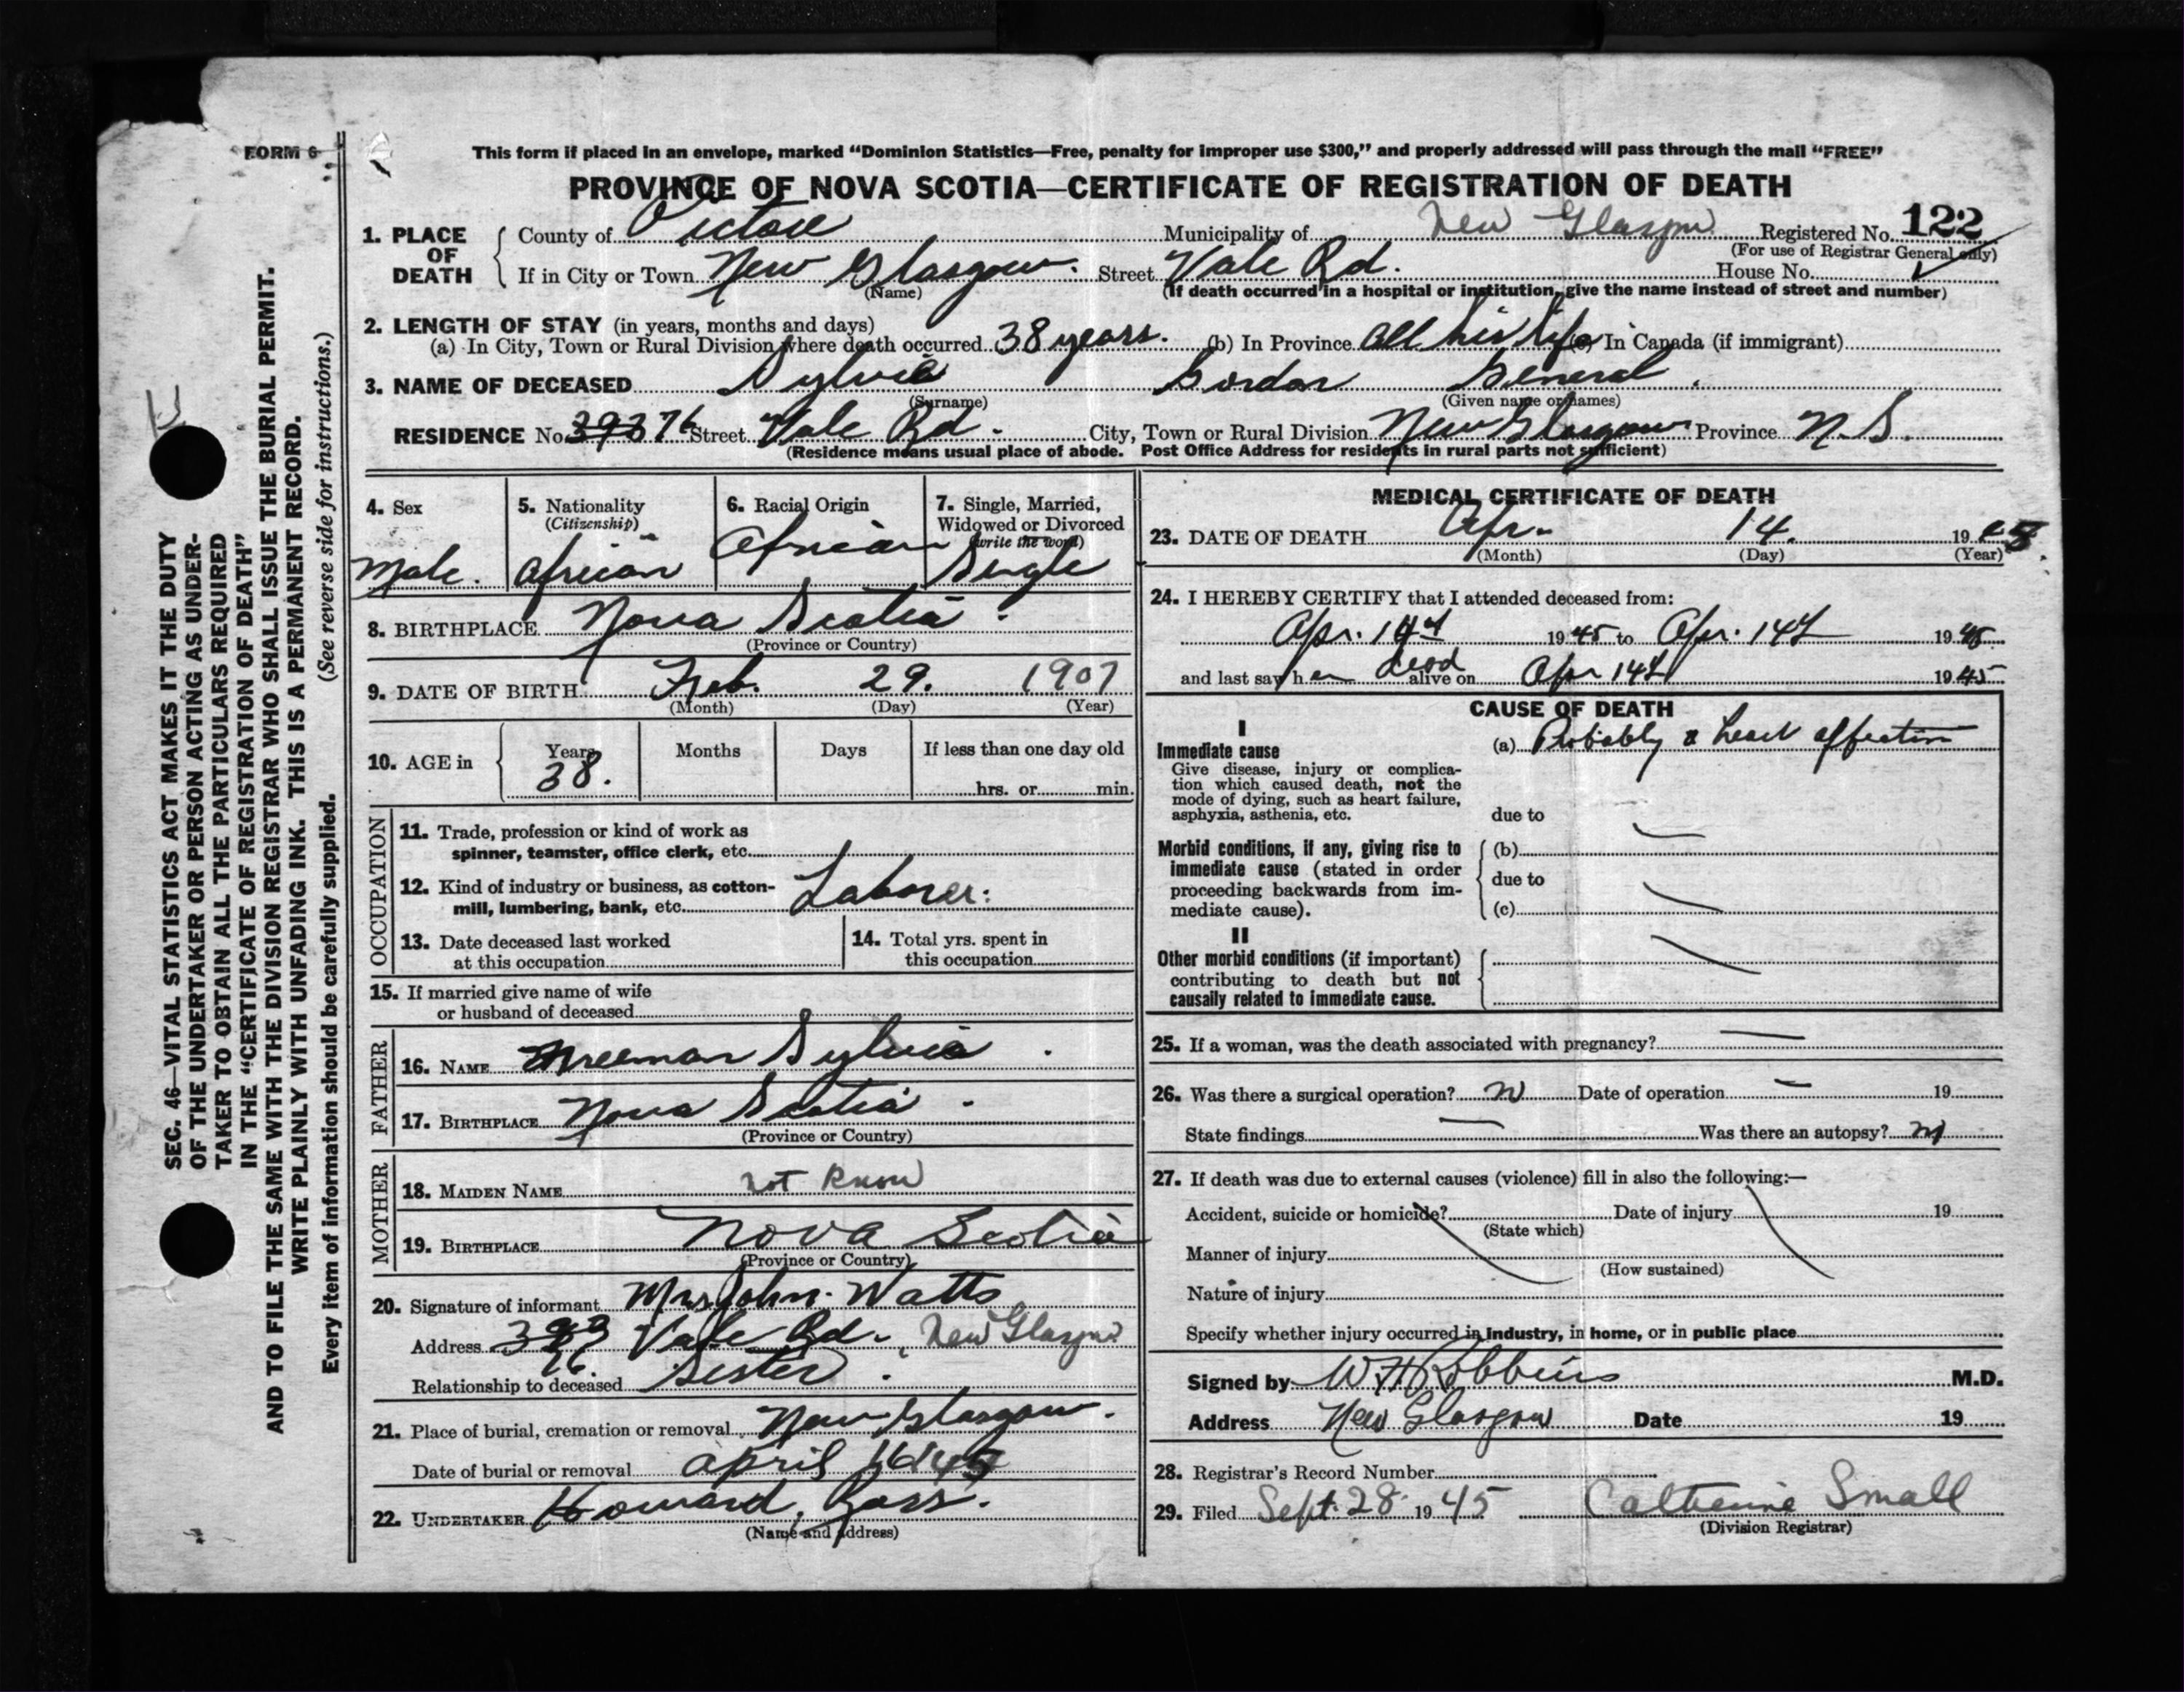 FORM 6
This form if placed in an envelope, marked “Dominion Statistics—Free, penalty for improper use $300,” and properly addressed will pass through the mail “FREE”
PROVINCE OF NOVA SCOTIA—CERTIFICATE OF REGISTRATION OF DEATH
1. PLACE OF DEATH County of Pictou Municipality of New Glasgow Registered No. 122
(For use of Registrar General only)
If in City or Town New Glasgow. Street Vale Rd. House No.
(Name)
(If death occurred in a hospital or institution, give the name instead of street and number)
2. LENGTH OF STAY (in years, months and days)
(a) In City, Town or Rural Division where death occurred 38 years. (b) In Province all his life (c) In Canada (if immigrant)
3. NAME OF DECEASED Sylvia Gordon General.
(Surname) (Given name or names)
RESIDENCE No. 76 Street Vale Rd. City, Town or Rural Division New Glasgow Province N.S.
(Residence means usual place of abode. Post Office Address for residents in rural parts not sufficient)
4. Sex
Male.
5. Nationality
(Citizenship)
African
6. Racial Origin
African
7. Single, Married,
Widowed or Divorced
(write the word)
Single
8. BIRTHPLACE Nova Scotia.
(Province or Country)
9. DATE OF BIRTH Feb. 29. 1907
(Month) (Day) (Year)
10. AGE in Years Months Days If less than one day old
38.
hrs. or min.
OCCUPATION
11. Trade, profession or kind of work as
spinner, teamster, office clerk, etc.
12. Kind of industry or business, as cotton-
mill, lumbering, bank, etc. Laborer.
13. Date deceased last worked
at this occupation
14. Total yrs. spent in
this occupation
15. If married give name of wife
or husband of deceased
FATHER
16. NAME Freeman Sylvia.
17. BIRTHPLACE Nova Scotia.
(Province or Country)
MOTHER
18. MAIDEN NAME not know
19. BIRTHPLACE Nova Scotia
(Province or Country)
20. Signature of informant Mrs John Watts
Address 76 Vale Rd. New Glasgow
Relationship to deceased Sister.
21. Place of burial, cremation or removal New Glasgow.
Date of burial or removal april 16 1945
22. UNDERTAKER Howard Ross.
(Name and address)
MEDICAL CERTIFICATE OF DEATH
23. DATE OF DEATH Apr. 14. 1945
(Month) (Day) (Year)
24. I HEREBY CERTIFY that I attended deceased from:
Apr. 14th 1945 to Apr. 14th 1945
and last saw h dead alive on Apr 14th 1945
CAUSE OF DEATH
I
Immediate cause (a) Probably a heart affection
Give disease, injury or complica-
tion which caused death, not the
mode of dying, such as heart failure,
asphyxia, asthenia, etc. due to
Morbid conditions, if any, giving rise to (b)
immediate cause (stated in order due to
proceeding backwards from im-
mediate cause). (c)
II
Other morbid conditions (if important)
contributing to death but not
causally related to immediate cause.
25. If a woman, was the death associated with pregnancy? —
26. Was there a surgical operation? no Date of operation — 19
State findings — Was there an autopsy? no
27. If death was due to external causes (violence) fill in also the following:—
Accident, suicide or homicide? Date of injury 19
(State which)
Manner of injury
(How sustained)
Nature of injury
Specify whether injury occurred in industry, in home, or in public place
Signed by W H Robbins M.D.
Address New Glasgow Date 19
28. Registrar's Record Number
29. Filed Sept. 28 1945 Catherine Small
(Division Registrar)
SEC. 46—VITAL STATISTICS ACT MAKES IT THE DUTY
OF THE UNDERTAKER OR PERSON ACTING AS UNDER-
TAKER TO OBTAIN ALL THE PARTICULARS REQUIRED
IN THE “CERTIFICATE OF REGISTRATION OF DEATH”
AND TO FILE THE SAME WITH THE DIVISION REGISTRAR WHO SHALL ISSUE THE BURIAL PERMIT.
WRITE PLAINLY WITH UNFADING INK. THIS IS A PERMANENT RECORD.
Every item of information should be carefully supplied. (See reverse side for instructions.)